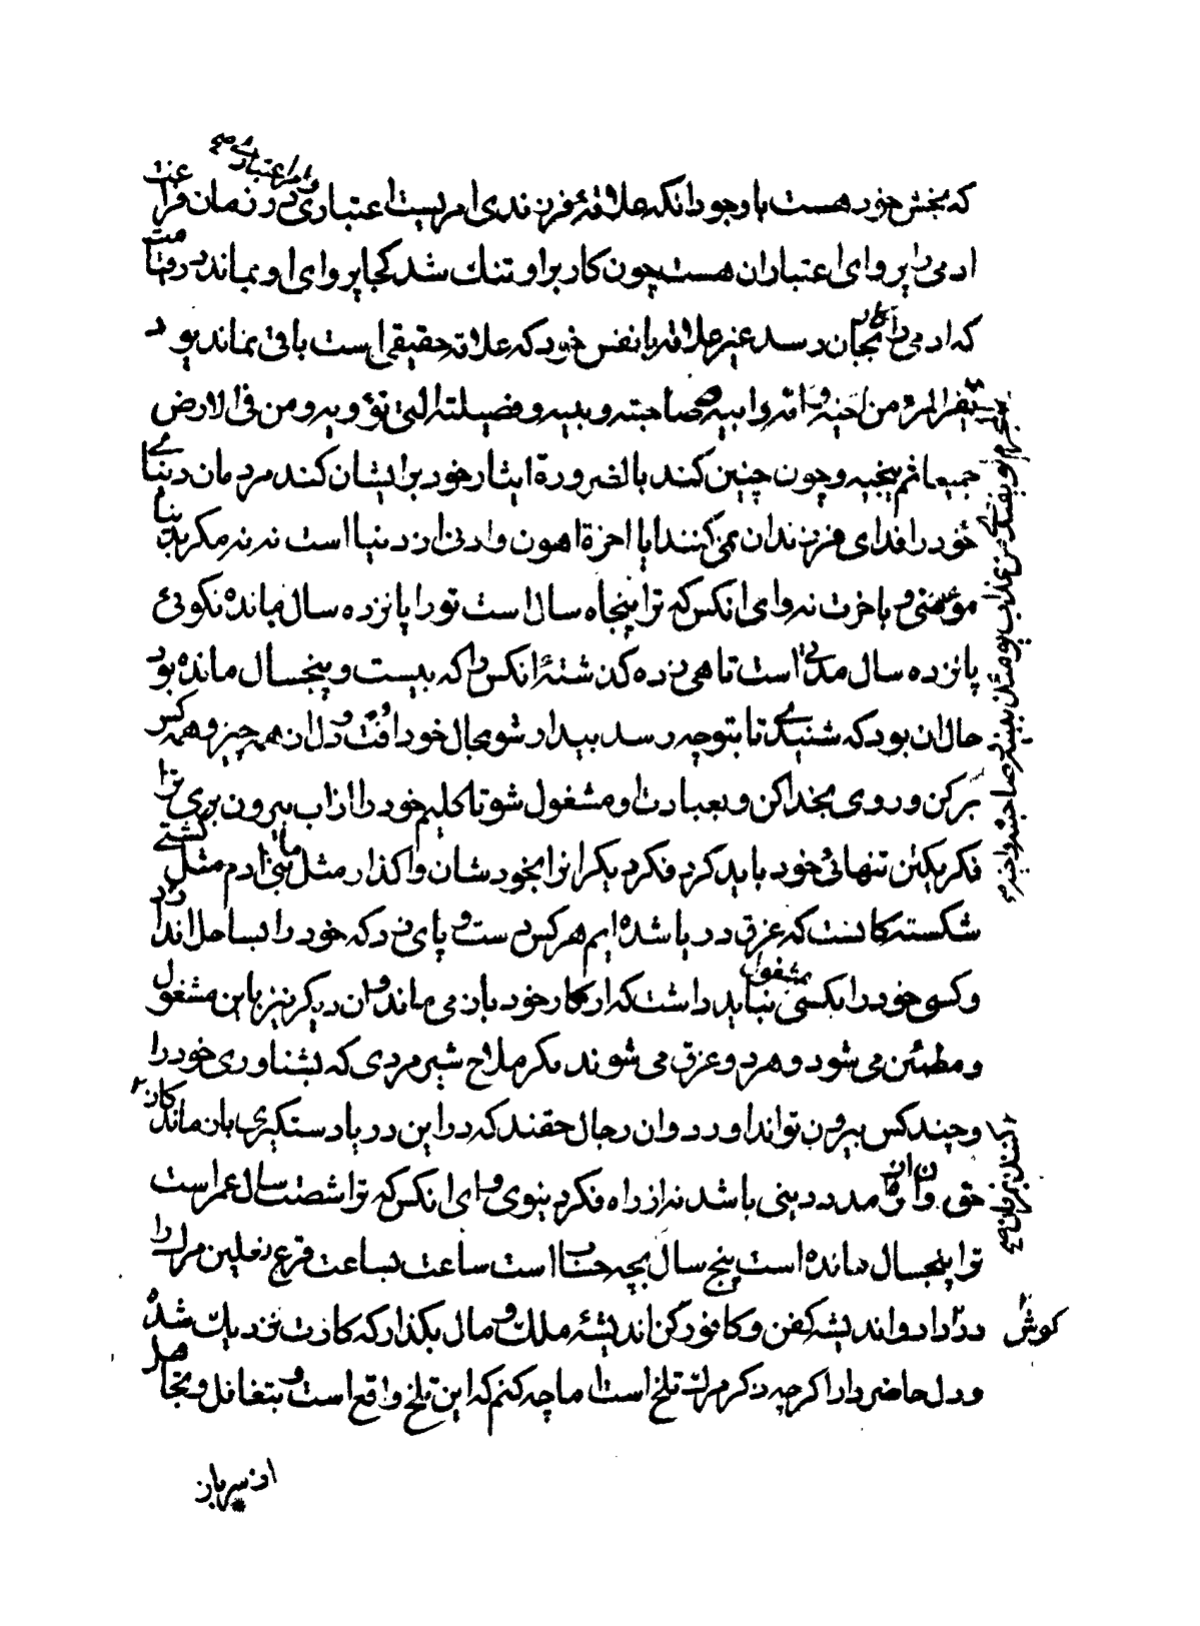 و امر اعتباری صح
که بخش خود هست با وجود انکه علاقهٔ فرزندی امریست اعتباری و در زمان فراغت
ادمی را پروای اعتباران هست چون کار بر او تنك شد کجا پروای او بماند در قیامت
که ادمی را کار بجان رسد غیر علاقه با نفس خود که علاقه حقیقی است باقی نماند یود
یفر المرؤ من اخیه و امه و ابیه و صاحبته و بنیه و فصیلته التی تؤویه و من فی الارض
جمیعا ثم ینجیه و چون چنین کند بالضرورة ایثار خود بر ایشان کند مردمان دنیای
خود را فدای فرزندان می کنند ایا اخرة اهون و ادنی از دنیا است نه نه مکر بدنیا
مؤمنی و باخرت نه وای انکس که ترا پنجاه سال است تو را پانزده سال مانده نکوئی
پانزده سال مدتی است تا هی زده کذشته انکس را که بیست و پنجسال مانده بود
حال ان بود که شنیدی تا بتوجه رسد بیدار شو بحال خود افت و دل از همه چیز و همه کس
برکن و روی بخدا کن و بعبادت او مشغول شو تا کلیم خود را از اب بیرون بری ترا
فکر یکتن تنهائی خود باید کرد فکر دیکرانرا بخودشان واکذار مثل ما بنی ادم مثل کشتی
شکسته کانست که غرق دریا شده ایم هر کس دست و پای زد که خود را بساحل اندازد
و کسی خود را بکسی مشغول نباید داشت که از کار خود باز می ماند و ان دیکر نیز باین مشغول
و مطمئن می شود و هر دو غرق می شوند مکر ملاح شیر مردی که بشناوری خود را
و چند کس بیرون تواند اورد و ان رجال حقند که در این دریا دستکیری بازماندکان
حق و ان از مدد دینی باشد نه از راه فکر دنیوی و ای انکس که ترا شصت سال عمر است
ترا پنجسال مانده است پنج سال بچه حساب است ساعت بساعت قرع نعلین مرك را
کوش در دار و اندیشه کفن و کافور کن اندیشهٔ ملك و مال بکذار که کارت نزدیك شده
و دل حاضر دار اکرچه ذکر مرك تلخ است اما چه کنم که این تلخ واقع است و بتغافل و تجاهل
از سر باز